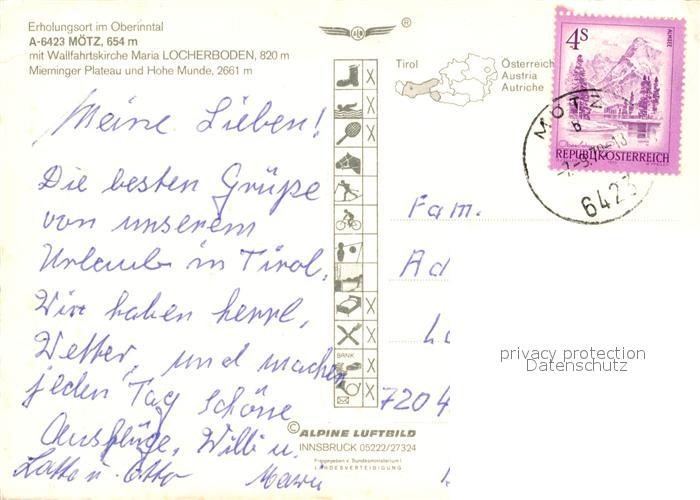 Erholungsort im Oberinntal
A-6423 MÖTZ, 654 m
mit Wallfahrtskirche Maria LOCHERBODEN, 820 m
Mieminger Plateau und Hohe Munde, 2661 m
®
Tirol
Österreich
Austria
Autriche
4S
ALMSEE
REPUBLIK ÖSTERREICH
MÖTZ
b
6423
Meine Lieben!
Die besten Grüße
von unserem
Urlaub in Tirol.
Wir haben herrl.
Wetter, und machen
jeden Tag schöne
Ausflüge. Willi u.
u. Otto
Fam.
Ad
7204
BANK
© ALPINE LUFTBILD
INNSBRUCK 05222/27324
Freigegeben v. Bundesministerium f.
LANDESVERTEIDIGUNG
privacy protection
Datenschutz